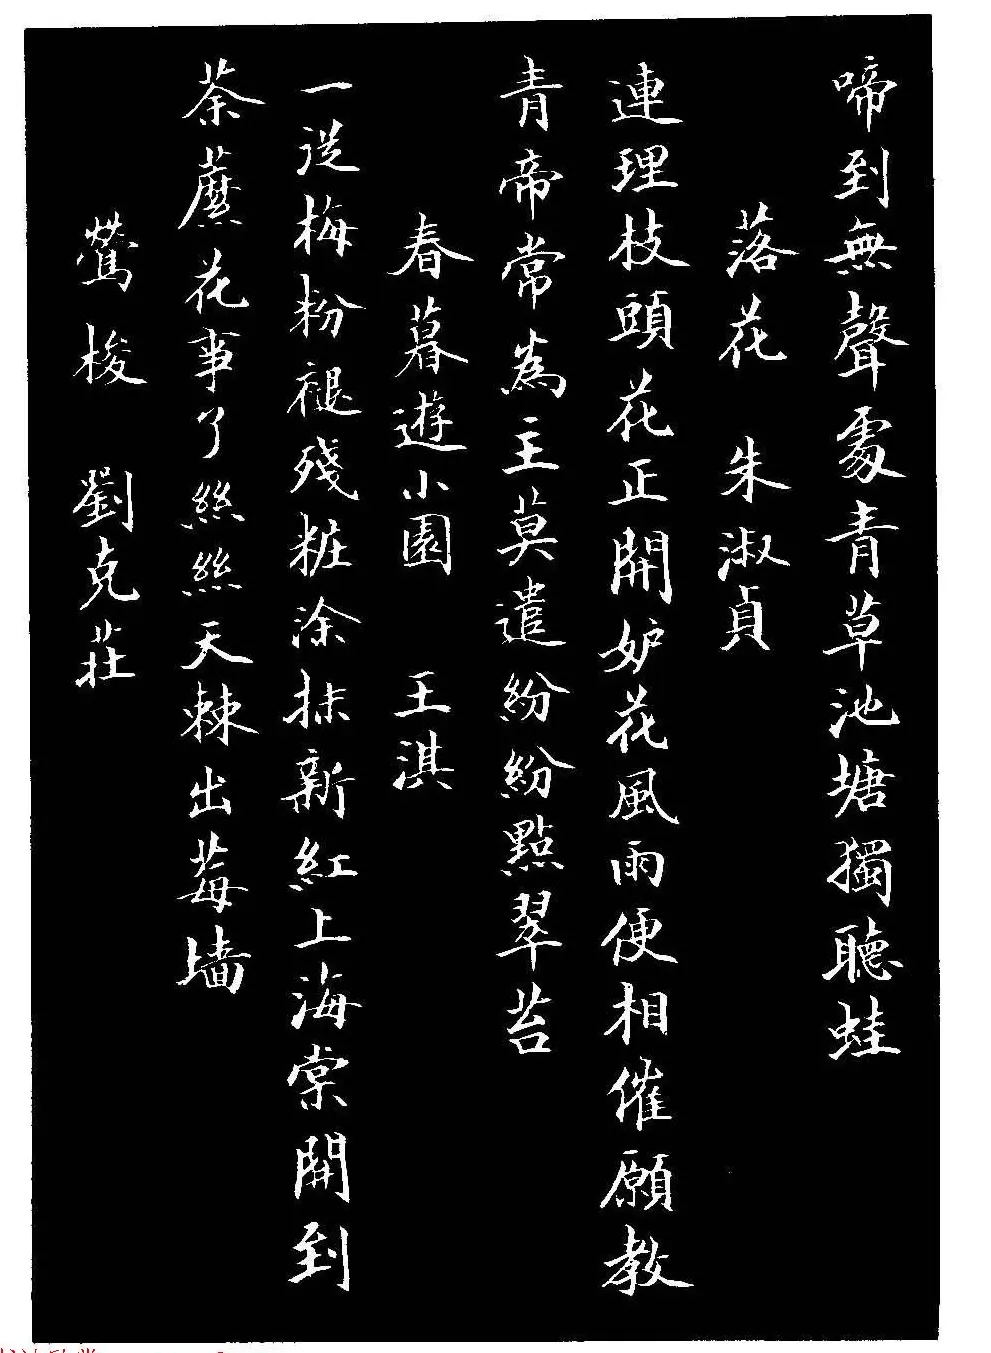 啼到無聲處青草池塘獨聽蛙
落花 朱淑貞
連理枝頭花正開妒花風雨便相催願教
青帝常為主莫遣紛紛點翠苔
春暮遊小園 王淇
一從梅粉褪殘粧涂抹新紅上海棠開到
荼蘼花事了絲絲天棘出莓墻
鶯梭 劉克莊